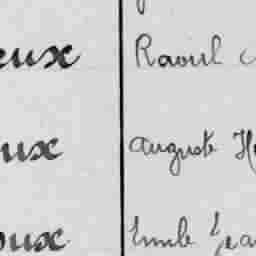 eux Raoul
ux Auguste
oux Emile Jea